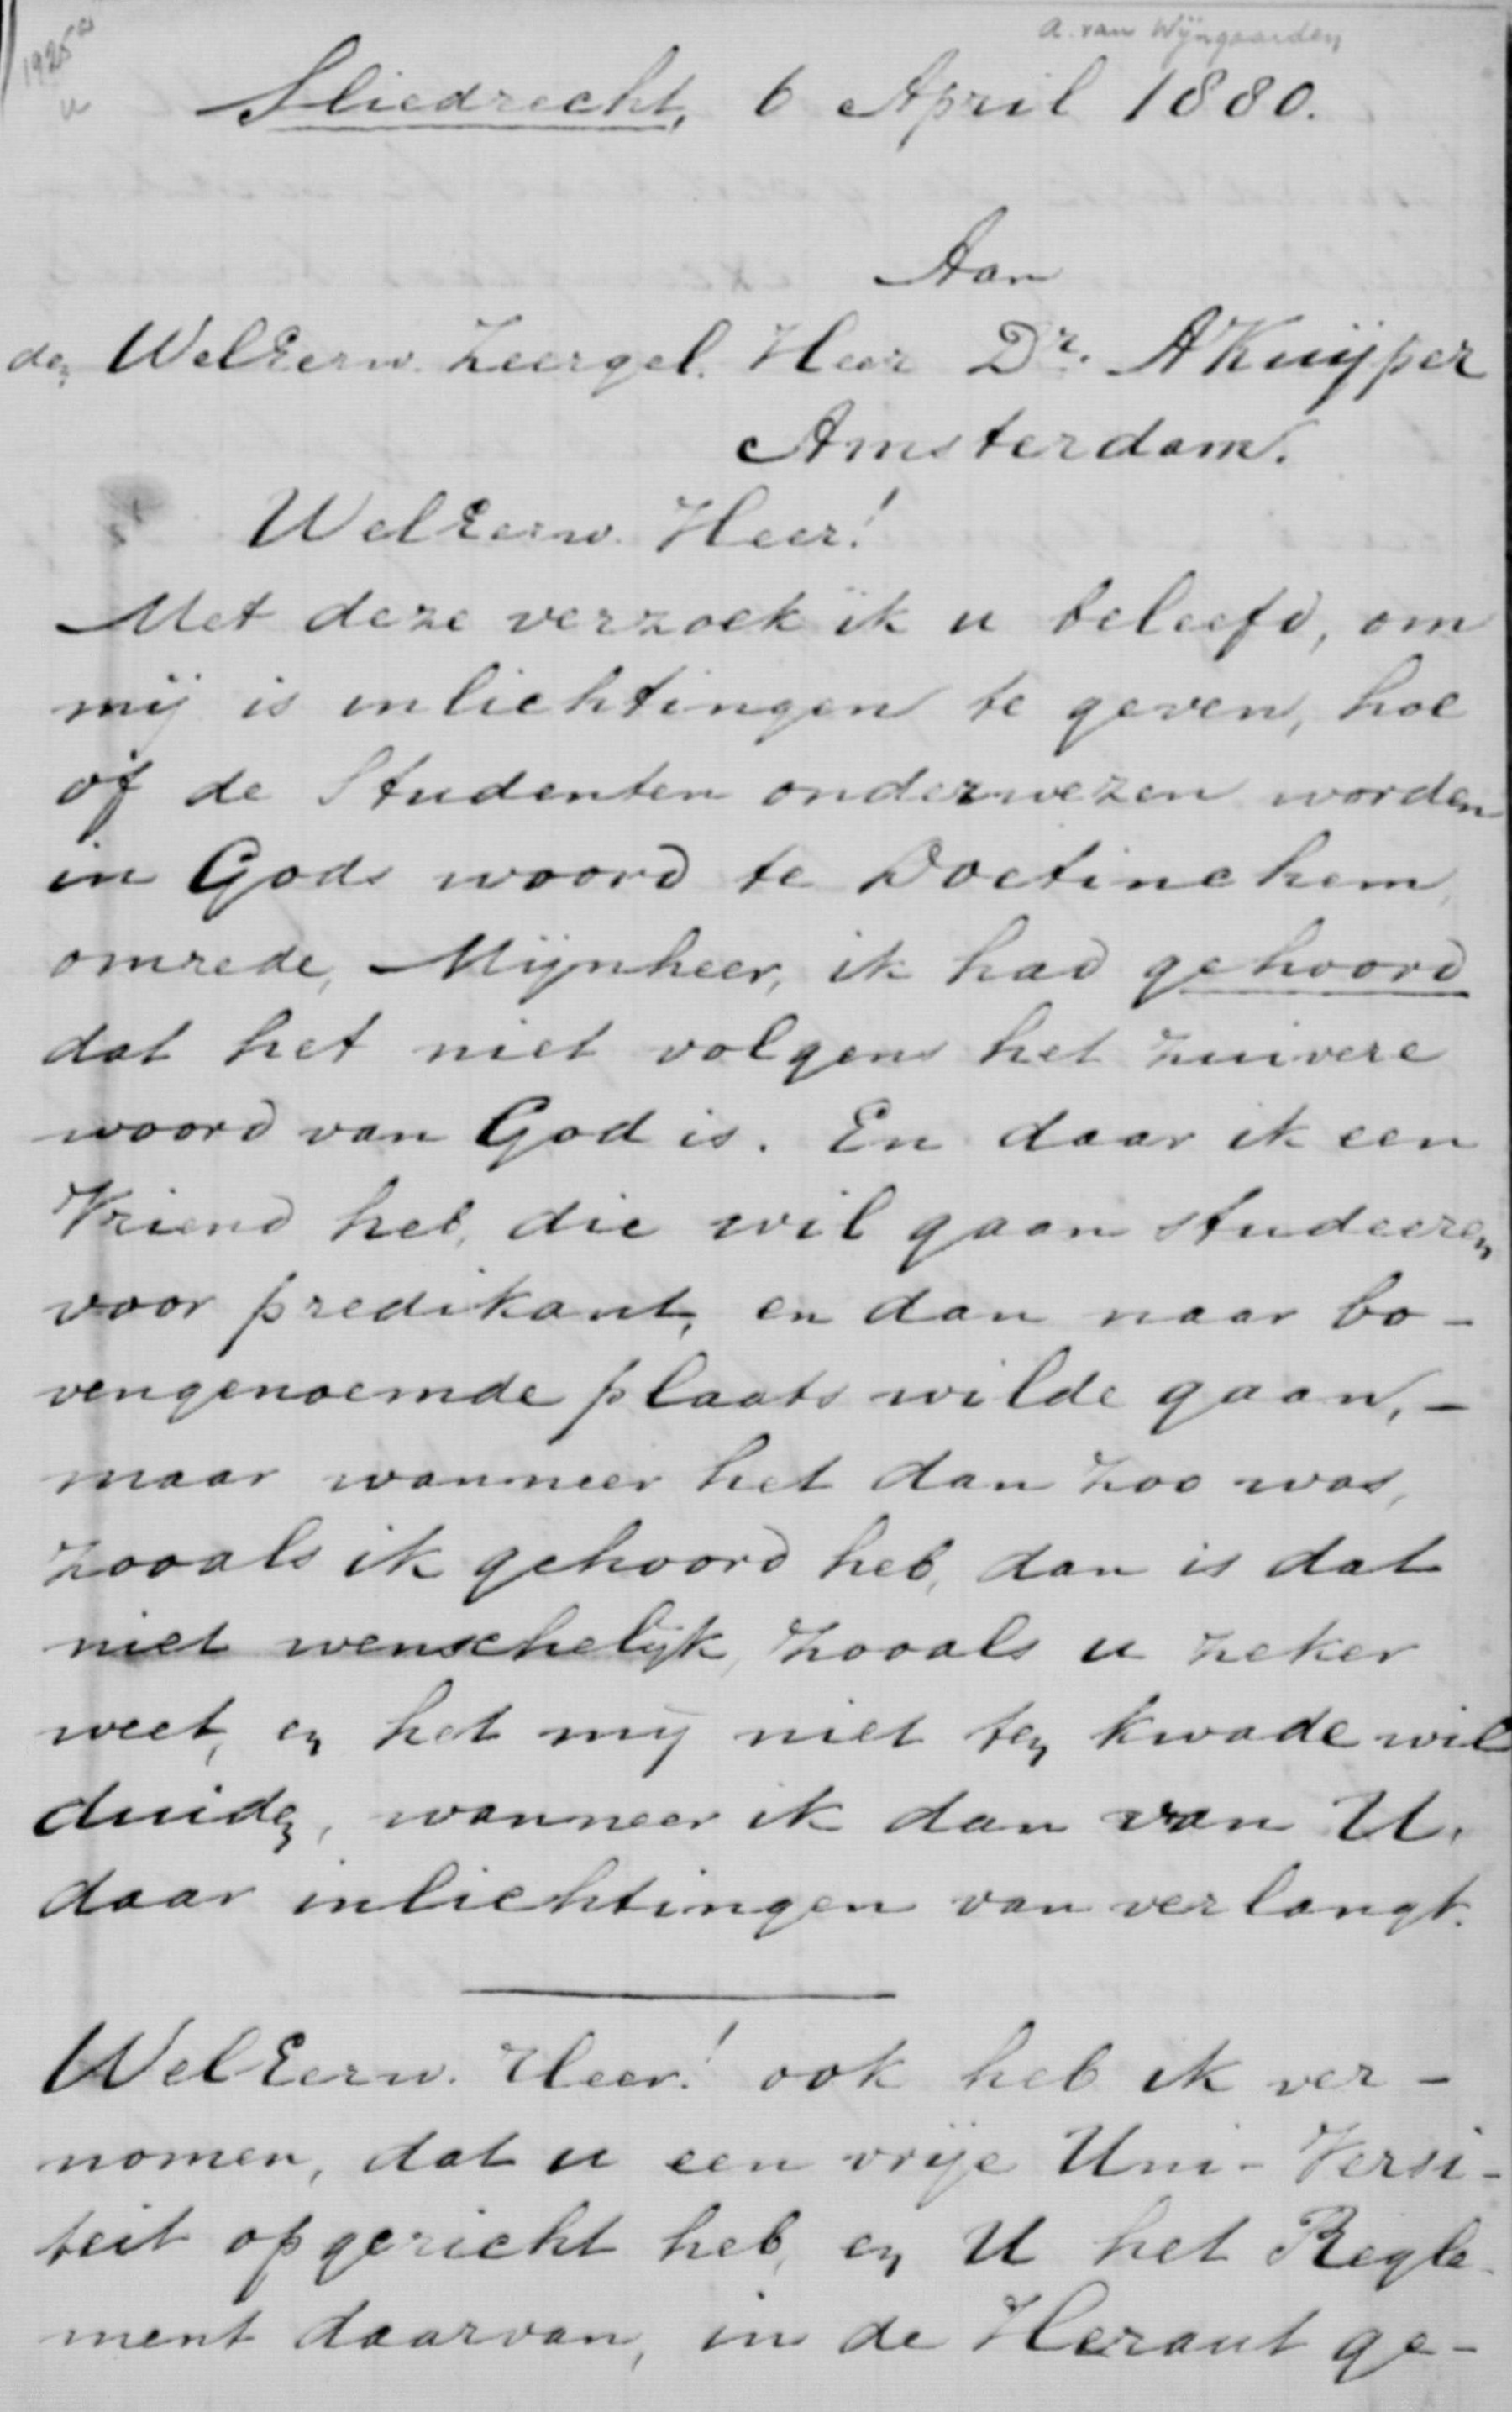 A. van Wijngaarden
1925a
Sliedrecht, 6 April 1880.
Aan
den WelEerw. Zeergel. Heer Dr. A Kuijper
Amsterdam.
WelEerw. Heer!
Met deze verzoek ik u beleefd, om
mij is inlichtingen te geven, hoe
of de Studenten onderwezen worden
in Gods woord te Doetinchem,
omrede, Mijnheer, ik had gehoord
dat het niet volgens het zuivere
woord van God is. En daar ik een
Vriend heb, die wil gaan studeeren
voor predikant, en dan naar bo-
vengenoemde plaats wilde gaan, -
maar wanneer het dan zoo was,
zooals ik gehoord heb, dan is dat
niet wenschelijk, zooals u zeker
weet, en het mij niet ten kwade wil
duiden, wanneer ik dan van U.
daar inlichtingen van verlangt.
WelEerw. Heer! ook heb ik ver-
nomen, dat u een vrije Uni-Versi-
teit opgericht heb, en U het Regle-
ment daarvan, in de Heraut ge-